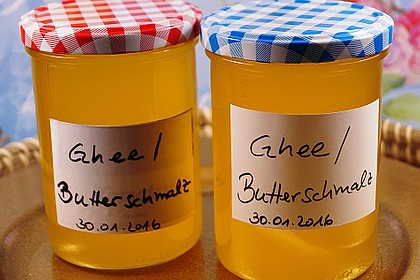 Ghee /
Butterschmalz
30.01.2016
Ghee /
Butterschmalz
30.01.2016